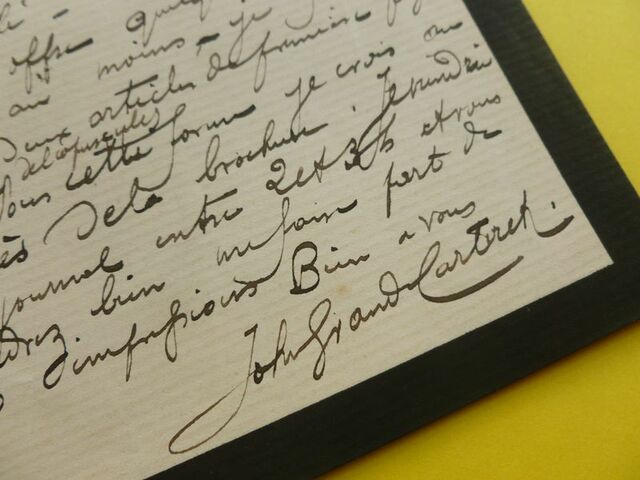 offre quelq
au moins - je
Deux articles de première p
de l'opuscule
sous cette forme je crois au
ès de la brochure. Je viendrai
journal entre 2 et 3h et vous
drez bien me faire part de
d'impressions Bien à vous
John Grand Carteret.